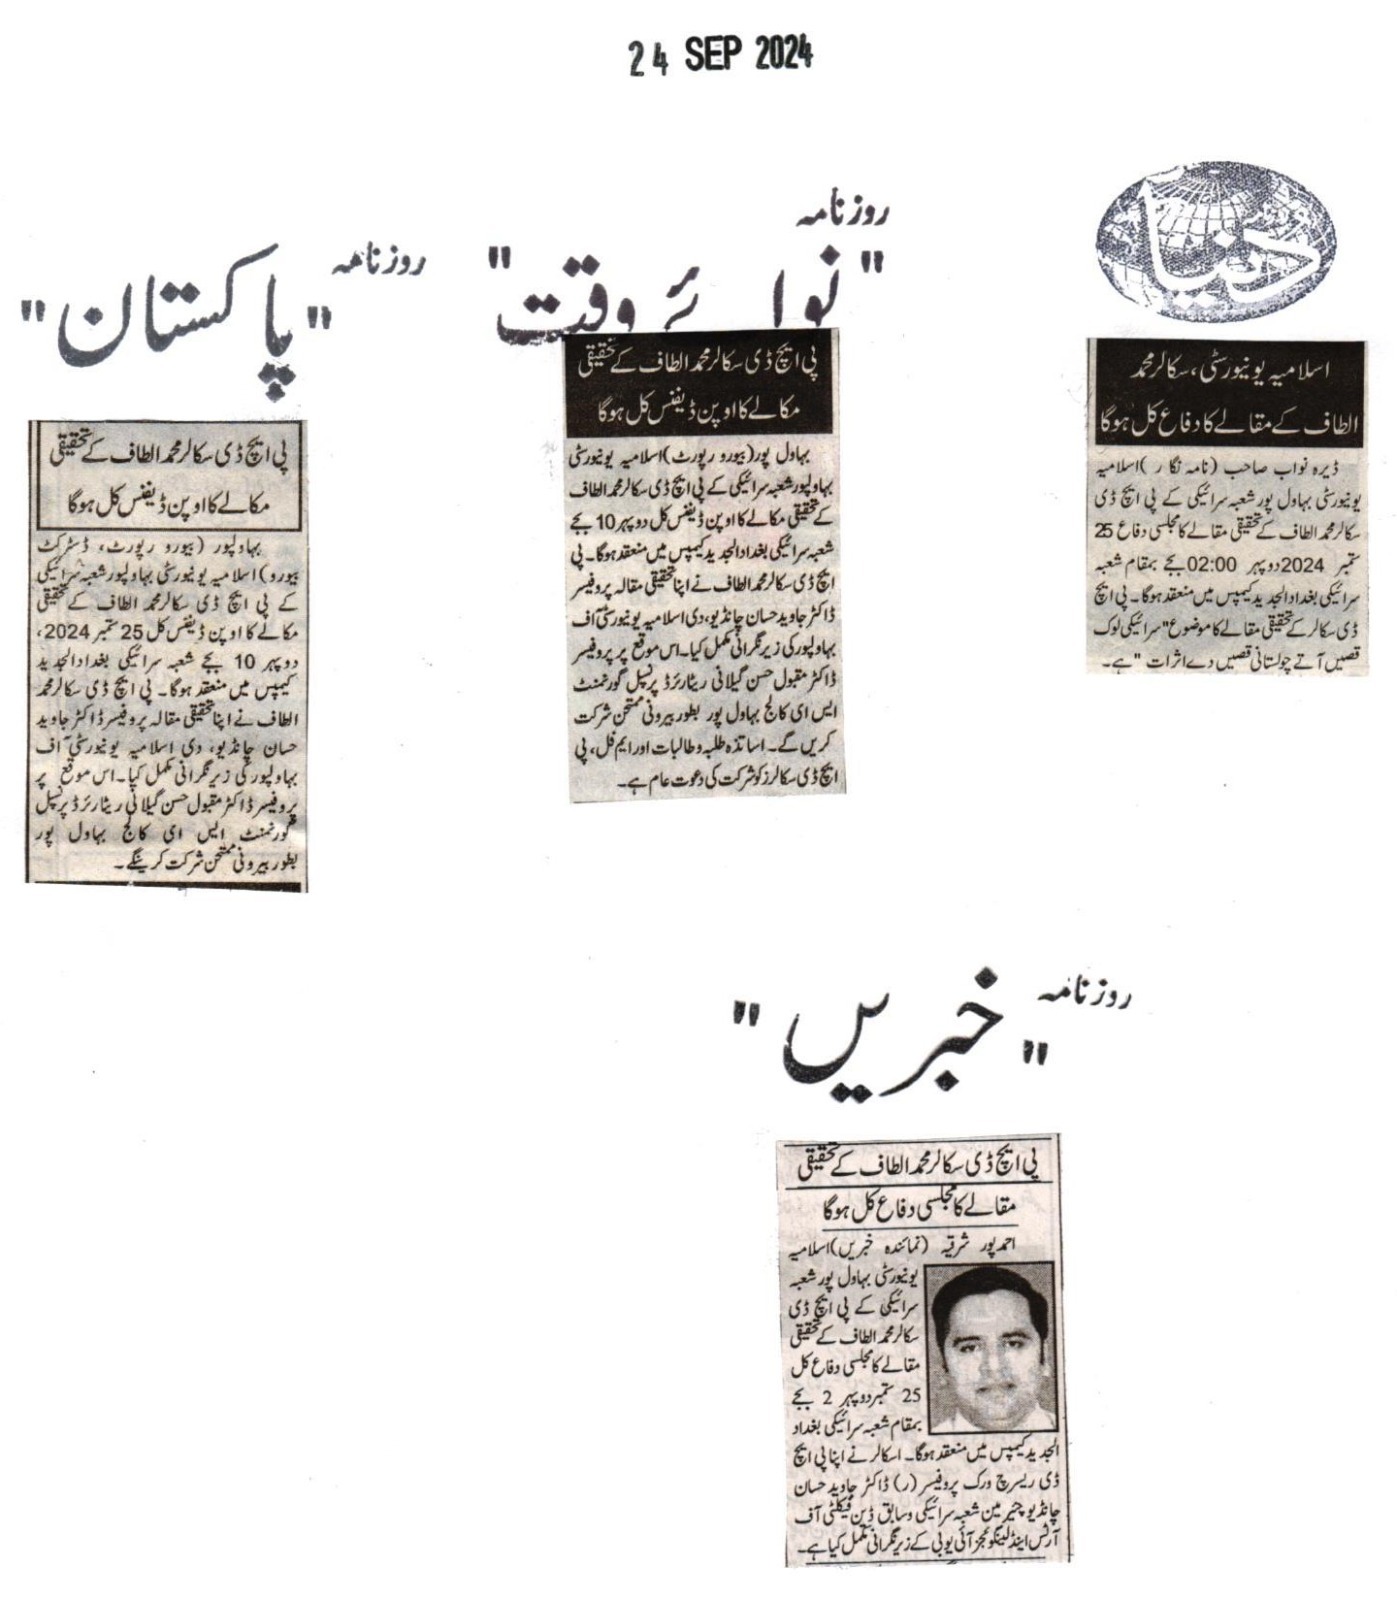 24 SEP 2024
روزنامہ
دنیا
اسلامیہ یونیورسٹی، سکالرمحمد
الطاف کے مقالے کا دفاع کل ہوگا
ڈیرہ نواب صاحب (نامہ نگار) اسلامیہ
یونیورسٹی بہاول پور شعبہ سرائیکی کے پی ایچ ڈی
سکالرمحمد الطاف کے تحقیقی مقالے کا مجلسی دفاع 25
ستمبر 2024 دوپہر 02:00 بجے بمقام شعبہ
سرائیکی بغداد الجدید کیمپس میں منعقد ہوگا۔ پی ایچ
ڈی سکالر کے تحقیقی مقالے کا موضوع "سرائیکی لوک
قصیں آتے چولستانی قصیں دے اثرات" ہے۔
روزنامہ
"نوائے وقت"
پی ایچ ڈی سکالرمحمد الطاف کے تحقیقی
مکالے کا اوپن ڈیفنس کل ہوگا
بہاول پور (بیورو رپورٹ) اسلامیہ یونیورسٹی
بہاولپور شعبہ سرائیکی کے پی ایچ ڈی سکالرمحمد الطاف
کے تحقیقی مکالے کا اوپن ڈیفنس کل دوپہر 10 بجے
شعبہ سرائیکی بغداد الجدید کیمپس میں منعقد ہوگا۔ پی
ایچ ڈی سکالرمحمد الطاف نے اپنا تحقیقی مقالہ پروفیسر
ڈاکٹر جاوید حسان چانڈیو، دی اسلامیہ یونیورسٹی آف
بہاولپور کی زیر نگرانی مکمل کیا۔ اس موقع پر پروفیسر
ڈاکٹر مقبول حسن گیلانی ریٹائرڈ پرنسپل گورنمنٹ
ایس ای کالج بہاول پور بطور بیرونی ممتحن شرکت
کریں گے۔ اساتذہ طلبہ و طالبات اور ایم فل، پی
ایچ ڈی سکالرز کو شرکت کی دعوت عام ہے۔
روزنامہ
"پاکستان"
پی ایچ ڈی سکالرمحمد الطاف کے تحقیقی
مکالے کا اوپن ڈیفنس کل ہوگا
بہاولپور (بیورو رپورٹ، ڈسٹرکٹ
بیورو) اسلامیہ یونیورسٹی بہاولپور شعبہ سرائیکی
کے پی ایچ ڈی سکالرمحمد الطاف کے تحقیقی
مکالے کا اوپن ڈیفنس کل 25 ستمبر 2024،
دوپہر 10 بجے شعبہ سرائیکی بغداد الجدید
کیمپس میں منعقد ہوگا۔ پی ایچ ڈی سکالرمحمد
الطاف نے اپنا تحقیقی مقالہ پروفیسر ڈاکٹر جاوید
حسان چانڈیو، دی اسلامیہ یونیورسٹی آف
بہاولپور کی زیر نگرانی مکمل کیا۔ اس موقع پر
پروفیسر ڈاکٹر مقبول حسن گیلانی ریٹائرڈ پرنسپل
گورنمنٹ ایس ای کالج بہاول پور
بطور بیرونی ممتحن شرکت کرینگے۔
روزنامہ
"خبریں"
پی ایچ ڈی سکالرمحمد الطاف کے تحقیقی
مقالے کا مجلسی دفاع کل ہوگا
احمد پور شرقیہ (نمائندہ خبریں) اسلامیہ
یونیورسٹی بہاول پور شعبہ
سرائیکی کے پی ایچ ڈی
سکالرمحمد الطاف کے تحقیقی
مقالے کا مجلسی دفاع کل
25 ستمبر دوپہر 2 بجے
بمقام شعبہ سرائیکی بغداد
الجدید کیمپس میں منعقد ہوگا۔ اسکالر نے اپنا پی ایچ
ڈی ریسرچ ورک پروفیسر (ر) ڈاکٹر جاوید حسان
چانڈیو چیئر مین شعبہ سرائیکی و سابق ڈین فیکلٹی آف
آرٹس اینڈ لینگوئجز آئی یو بی کے زیر نگرانی مکمل کیا ہے۔